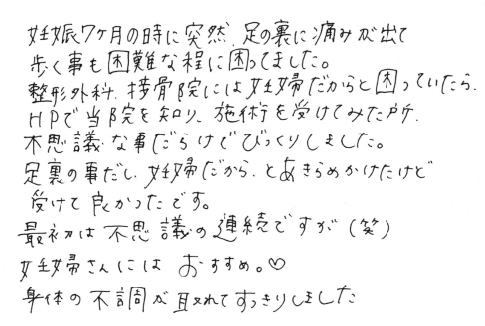 妊娠7ヶ月の時に突然、足の裏に痛みが出て
歩く事も困難な程に困ってました。
整形外科、接骨院には妊婦だからと困っていたら、
HPで当院を知り、施術を受けてみた所、
不思議な事だらけでびっくりしました。
足裏の事だし、妊婦だから、とあきらめかけたけど
受けて良かったです。
最初は不思議の連続ですが(笑)
妊婦さんには おすすめ。♡
身体の不調が取れてすっきりしました